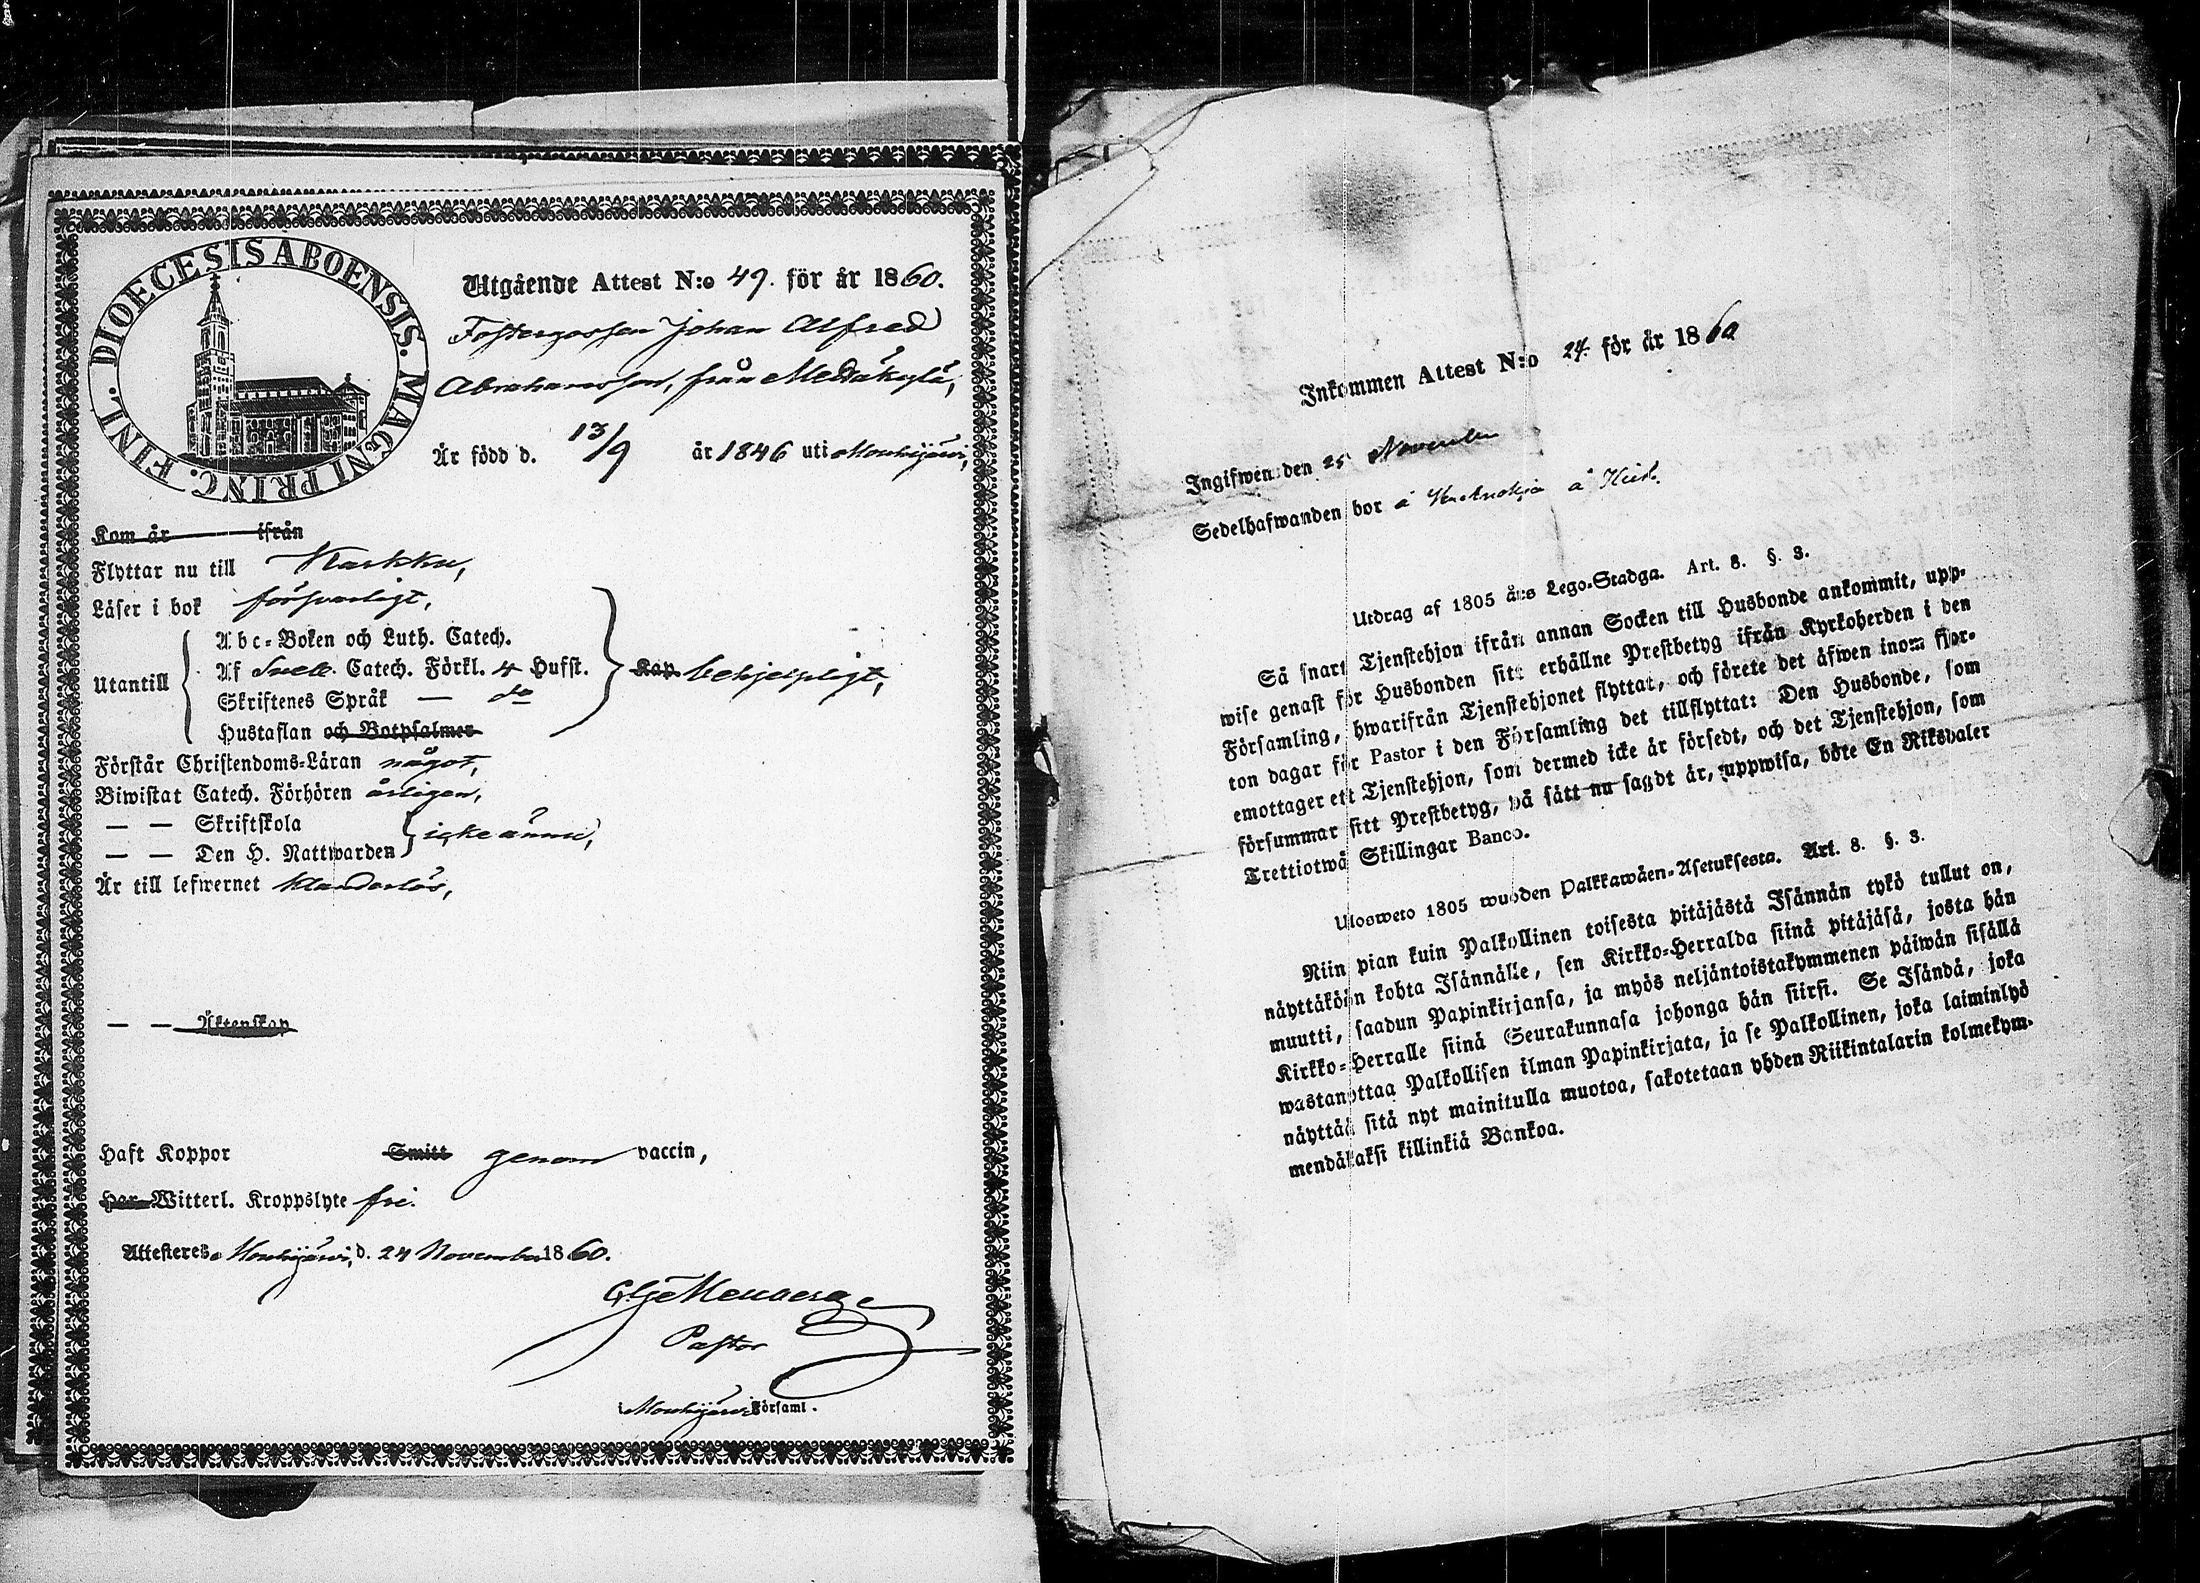 FINL. DIOECESIS ABOENSIS. MAGNI PRINC.
Utgående Attest N:o 49. för år 1860.
Fostergossen Johan Alfred
Abrahamsson, från Metsäkylä,
Är född d. 13/9 år 1846 uti Mouhijärvi,
Kom år ifrån
Flyttar nu till Karkku,
Läser i bok försvarligt,
Utantill
Abc-Boken och Luth. Catech.
Af Sveb. Catech. Förkl. 4 Hufst.
Skriftenes Språk — do
Hustaflan och Botpsalmer
Kap behjelpligt,
Förstår Christendoms-Läran något,
Biwistat Catech. Förhören årligen,
— — Skriftskola
— — Den H. Nattwarden
icke ännu,
Är till lefwernet klanderlös,
— — Äktenskap
Haft Koppor Smitt genom vaccin,
Har Witterl. Kroppslyte fri.
Attesteres Mouhijärvi, d. 24 November 1860.
Pastor
i Mouhijärvi Församl.
Inkommen Attest N:o 24. för år 1860
Ingifwen den 25 November
Sedelhafwanden bor å
Utdrag af 1805 års Lego-Stadga. Art. 8. §. 3.
Så snart Tjenstehjon ifrån annan Socken till Husbonde ankommit, upp-
wise genast för Husbonden sitt erhållne Prestbetyg ifrån Kyrkoherden i den
Församling, hwarifrån Tjenstehjonet flyttat, och förete det äfwen inom fjor-
ton dagar för Pastor i den Församling det tillflyttat: Den Husbonde, som
emottager ett Tjenstehjon, som dermed icke är försedt, och det Tjenstehjon, som
försummar sitt Prestbetyg, på sätt nu sagdt är, uppwisa, böte En Riksdaler
Trettiotwå Skillingar Banco.
Ulosweto 1805 wuoden Palkkawäen-Asetuksesta. Art. 8. §. 3.
Niin pian kuin Palkollinen toisesta pitäjästä Isännän tykö tullut on,
näyttäköön kohta Isännälle, sen Kirkko-Herralda siinä pitäjäsä, josta hän
muutti, saadun Papinkirjansa, ja myös neljäntoistakymmenen päiwän sisällä
Kirkko-Herralle siinä Seurakunnasa johonga hän siirsi. Se Isändä, joka
wastanottaa Palkollisen ilman Papinkirjata, ja se Palkollinen, joka laiminlyö
näyttää sitä nyt mainitulla muotoa, sakotetaan yhden Riikintalarin kolmekym-
mendäkaksi killinkiä Bankoa.